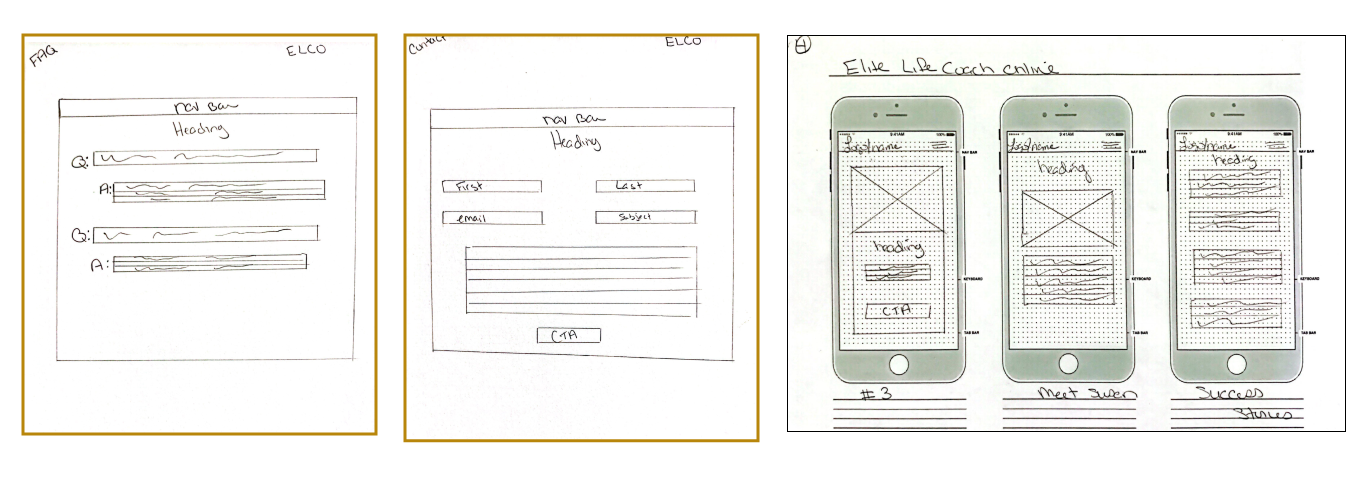 FAQ
ELCO
nav Bar
Heading
Q:
A:
Q:
A:
Contact
ELCO
nav Bar
Heading
First
Last
email
Subject
CTA
4
Elite Life Coach online
9:41AM
100%
Logo/name
NAV BAR
heading
CTA
KEYBOARD
TAB BAR
#3
9:41AM
100%
Logo/name
NAV BAR
heading
KEYBOARD
TAB BAR
Meet Susan
9:41AM
100%
Logo/name
NAV BAR
heading
KEYBOARD
TAB BAR
Success
Stories